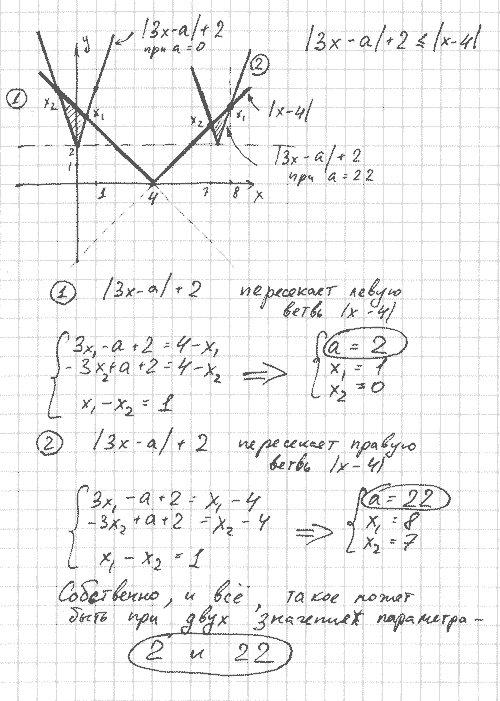 |3x-a|+2
при a=0
|3x-a|+2 ≤ |x-4|
y
②
①
x₂
x₁
x₂
x₁
|x-4|
2
1
|3x-a|+2
при a=22
1
4
7
8
x
① |3x-a|+2 пересекает левую
ветвь |x-4|
3x₁-a+2=4-x₁
-3x₂+a+2=4-x₂
x₁-x₂=1
=>
a=2
x₁=1
x₂=0
② |3x-a|+2 пересекает правую
ветвь |x-4|
3x₁-a+2=x₁-4
-3x₂+a+2=x₂-4
x₁-x₂=1
=>
a=22
x₁=8
x₂=7
Собственно, и всё, такое может
быть при двух значениях параметра-
2 и 22